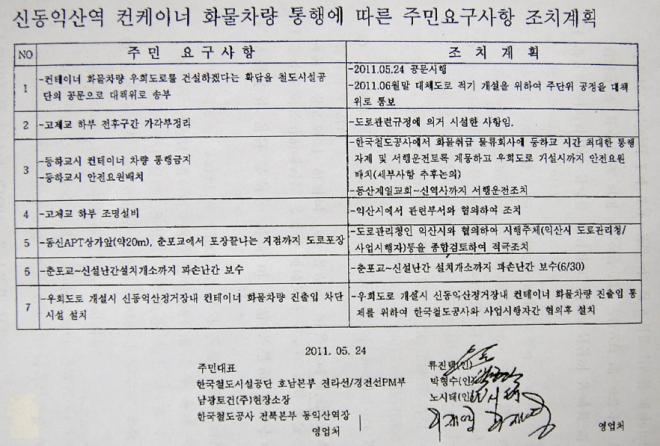 신동익산역 컨케이너 화물차량 통행에 따른 주민요구사항 조치계획
NO 주 민 요 구 사 항 조 치 계 획
1 -컨테이너 화물차량 우회도로를 건설하겠다는 확답을 철도시설공
단의 공문으로 대책위로 송부
-2011.05.24 공문시행
-2011.06월말 대체도로 적기 개설을 위하여 주단위 공정을 대책
위로 통보
2 -고제교 하부 전후구간 가각부정리 -도로관련규정에 의거 시설한 사항임.
3 -등하교시 컨테이너 차량 통행금지
-등하교시 안전요원배치
-한국철도공사에서 화물취급 물류회사에 등하교 시간 최대한 통행
자제 및 서행운전토록 계몽하고 우회도로 개설시까지 안전요원
배치(세부사항 추후논의)
-동산제일교회~신역사까지 서행운전조치
4 -고제교 하부 조명설비 -익산시에서 관련부서와 협의하여 조치
5 -동신APT상가앞(약20m), 춘포교에서 포장끝나는 지점까지 도로포장
-도로관리청인 익산시와 협의하여 시행주체(익산시 도로관리청/
사업시행자)등을 종합검토하여 적극조치
6 -춘포교~신설난간설치개소까지 파손난간 보수 -춘포교~신설난간 설치개소까지 파손난간 보수(6/30)
7 -우회도로 개설시 신동익산정거장내 컨테이너 화물차량 진출입 차단
시설 설치
-우회도로 개설시 신동익산정거장내 컨테이너 화물차량 진출입 통
제를 위하여 한국철도공사와 사업시행자간 협의후 설치
2011. 05. 24
주민대표 류진택(인)
한국철도시설공단 호남본부 전라선/경전선PM부 박형수(인)
남광토건(주)현장소장 노시태(인)
한국철도공사 전북본부 동익산역장
영업처 영업처